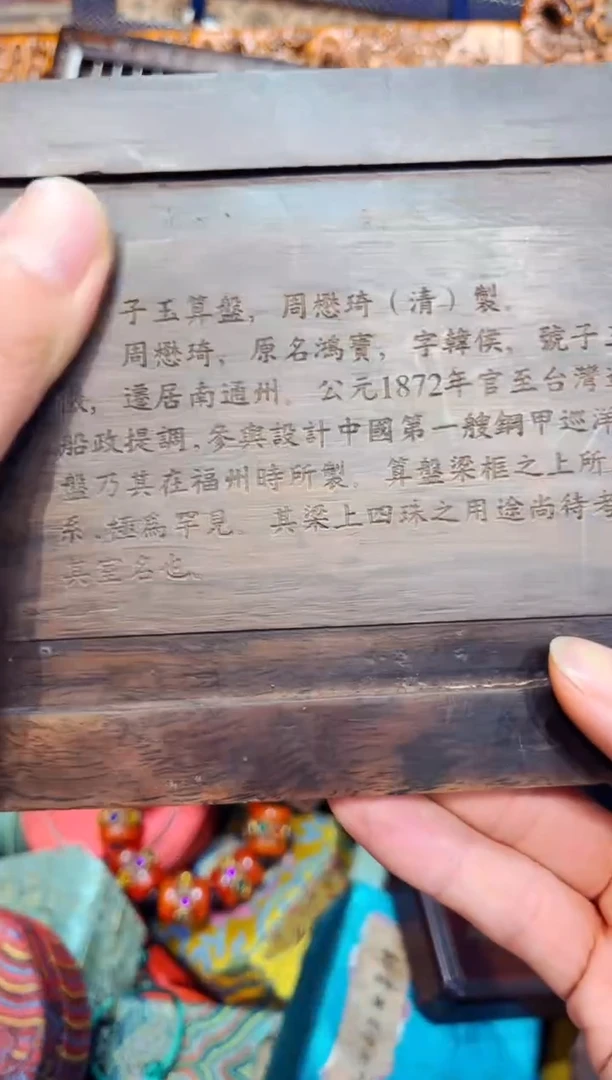 子玉算盤，周懋琦（清）製。
周懋琦，原名鴻寶，字韓侯，號子
，還居南通州。公元1872年官至台灣
船政提調，參與設計中國第一艘鋼甲巡洋
盤乃其在福州時所製。算盤梁框之上所
系，極爲罕見。其梁上四珠之用途尚待考
其室名也。